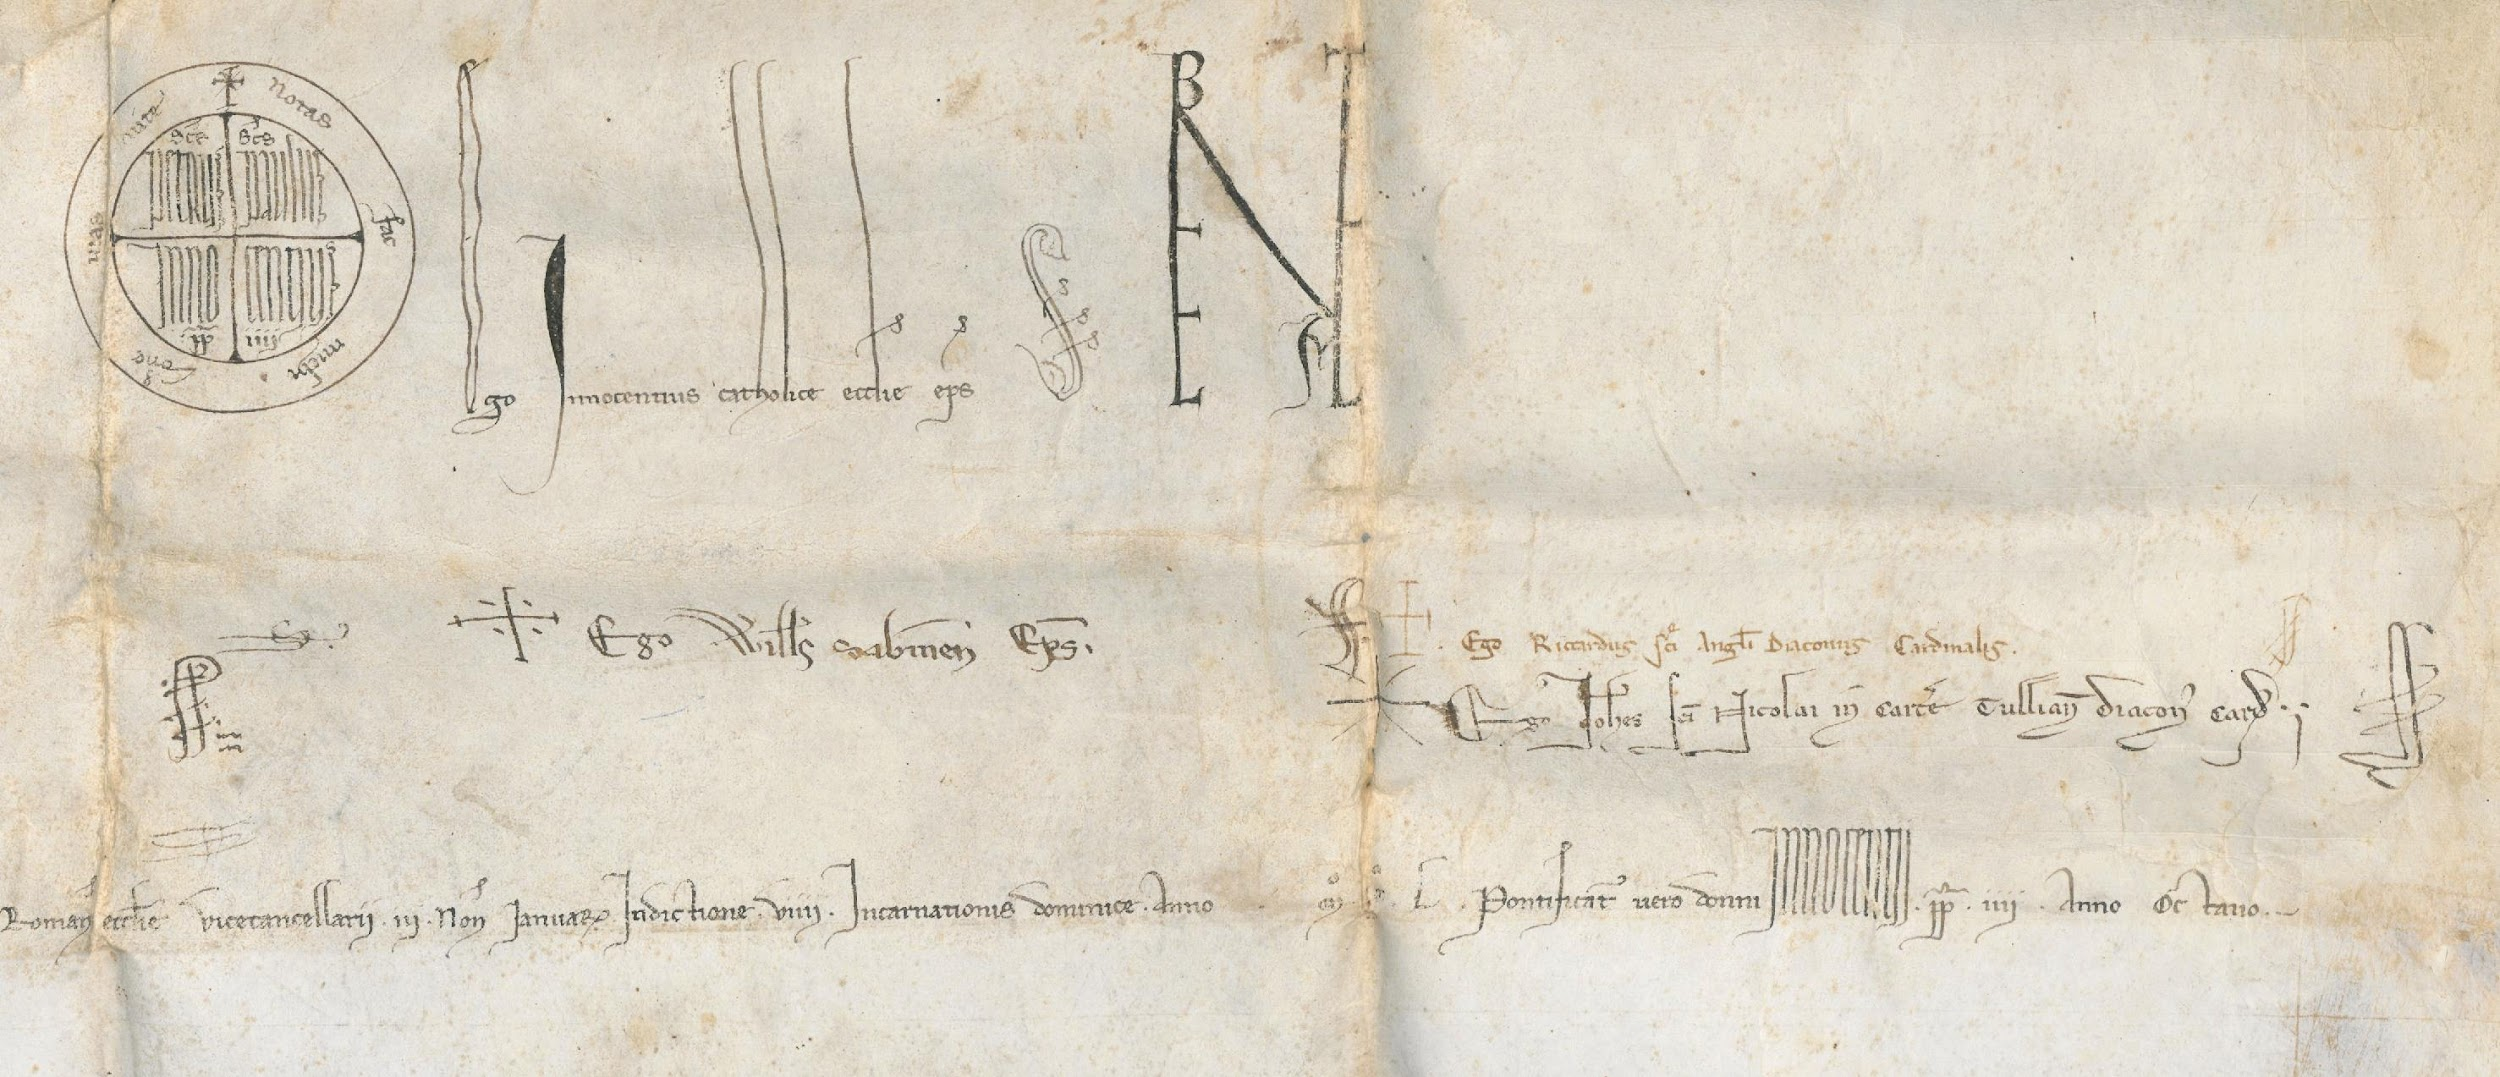 Notas fac michi domine uias uite
scs petrus scs paulus
Inno centius
pp iiii
Ego Innocentius catholice ecclie eps ss
BENE UALETE
Ego Wills Sabinen Eps.
Ego Riccardus sci Angli Diaconus Cardinalis.
Ego Johes sci Nicolai in carcere Tullian diacon card
Roman ecclie vicecancellarii . iij . Non Januar . Indictione . viiii . Incarnationis dominice . Anno . m . cc . L . Pontificat uero domni INNOCENTII . pp . iiii . Anno Octauo .